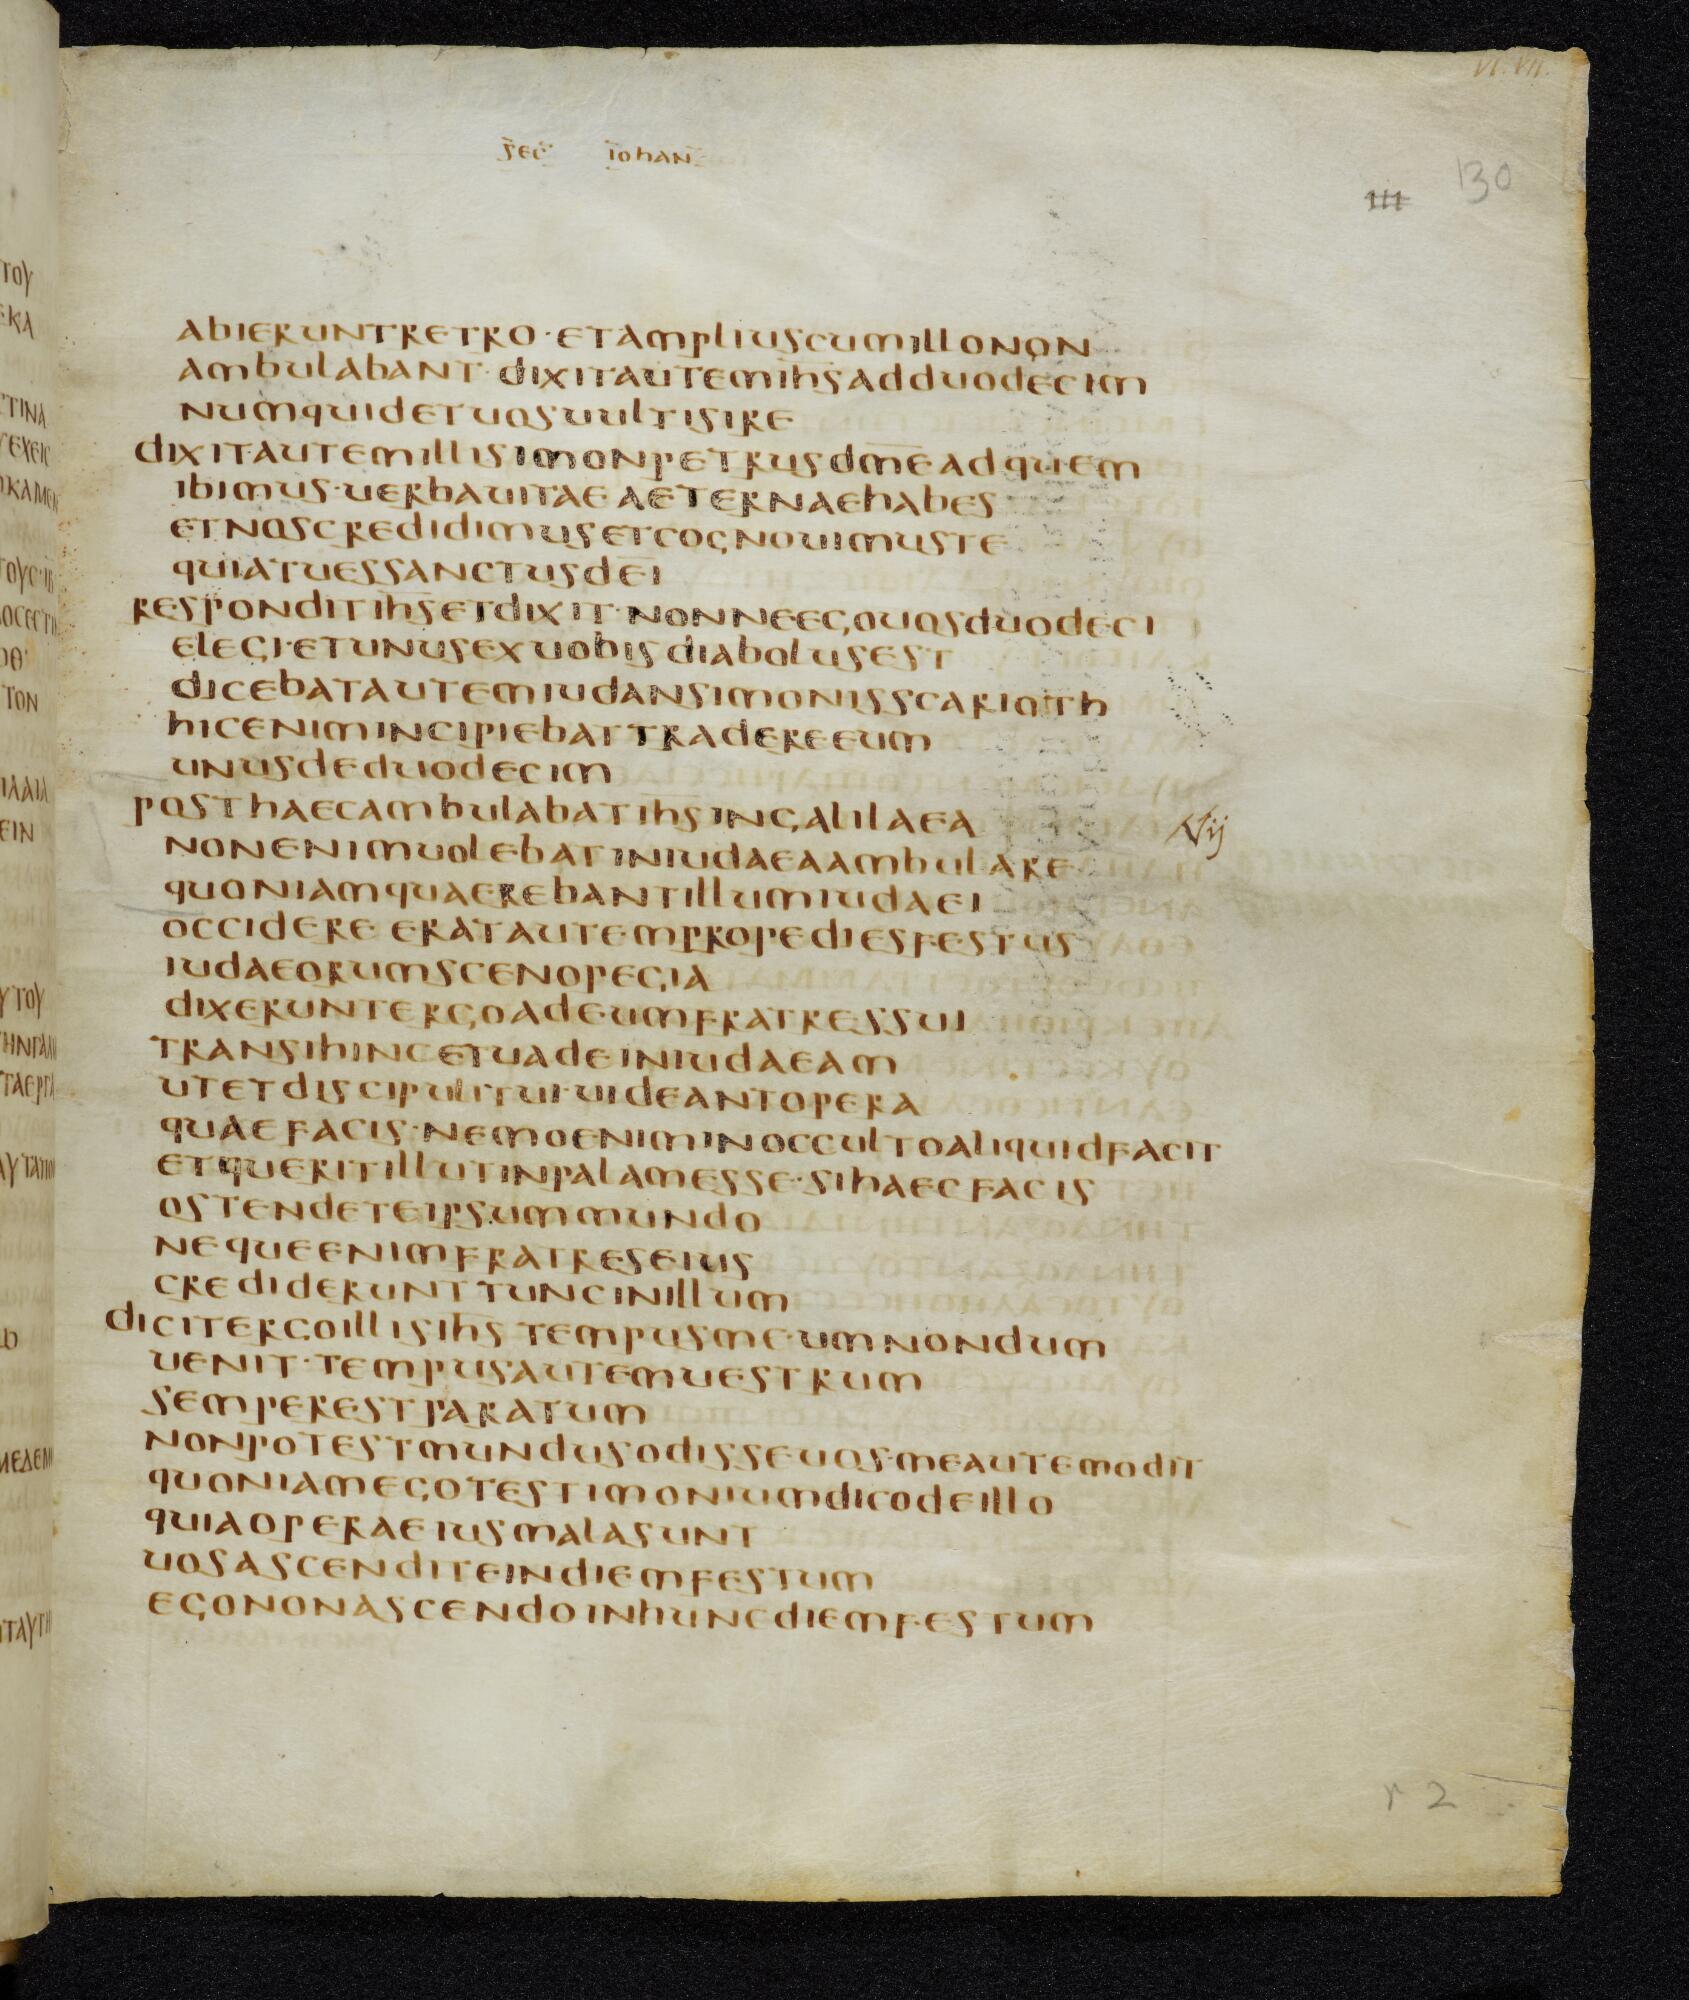 VI. VII.
sec iohan
130
III
abieruntretro · etampliuscumillonon
ambulabant · dixitautemihsadduodecim
numquidetuosuultisire
dixitautemillisimonpetrusdmeadquem
ibimus · uerbauitaeaeternaehabes
etnoscredidimusetcognouimuste
quiatuessanctusdei
responditihsetdixit · nonneegouosduodeci
elegi · etunusexuobisdiabolusest
dicebatautemiudansimonisscarioth
hicenimincipiebattradereeum
unusdeduodecim
posthaecambulabatihsingalilaea
Vij
nonenimuolebatiniudaeaambulare
quoniamquaerebantillumiudaei
occidere eratautempropediesfestus
iudaeorumscenopegia
dixeruntergoadeumfratressui
transihincetuadeiniudaeam
utetdiscipulitui · uideantopera
quaefacis · nemoeniminoccultoaliquidfacit
etqueritillutinpalamesse · sihaecfacis
ostendeteipsummundo
nequeenimfratreseius
crediderunttuncinillum
dicitergoillisihs tempusmeumnondum
uenit · tempusautemuestrum
semperestparatum
nonpotestmundusodisseuos · meautemodit
quoniamegotestimoniumdicodeillo
quiaoperaeiusmalasunt
uosascenditeindiemfestum
egononascendoinhuncdiemfestum
r 2